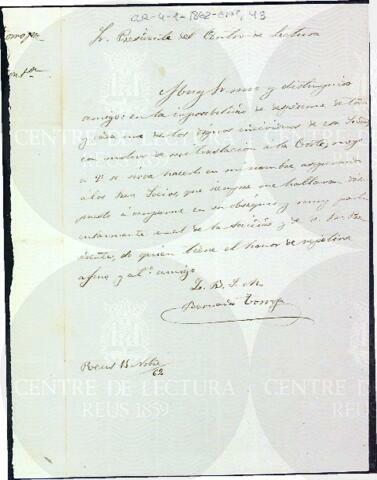 CR-4-1-1862-enr, 43
Sr. Presidente del Centro de Lectura
Muy Sr. mio y distinguido
amigo: en la imposibilidad de despedirme de todos
y cada uno de los dignos individuos de esa Sociedad
con motivo de mi traslacion a la Corte, ruego
a V. se sirva hacerlo en mi nombre asegurando
á los Sres. Socios, que siempre me hallarán dis
puesto á ocuparme en su obsequio y muy parti
cularmente en el de la Sociedad y de su Pre
sidente, de quien tiene el honor de repetirse
afmo. y at.º amigo
Q. B. S. M.
Bernardo Torroja
Reus 15 Nobre
62
CENTRE DE LECTURA
REUS 1859